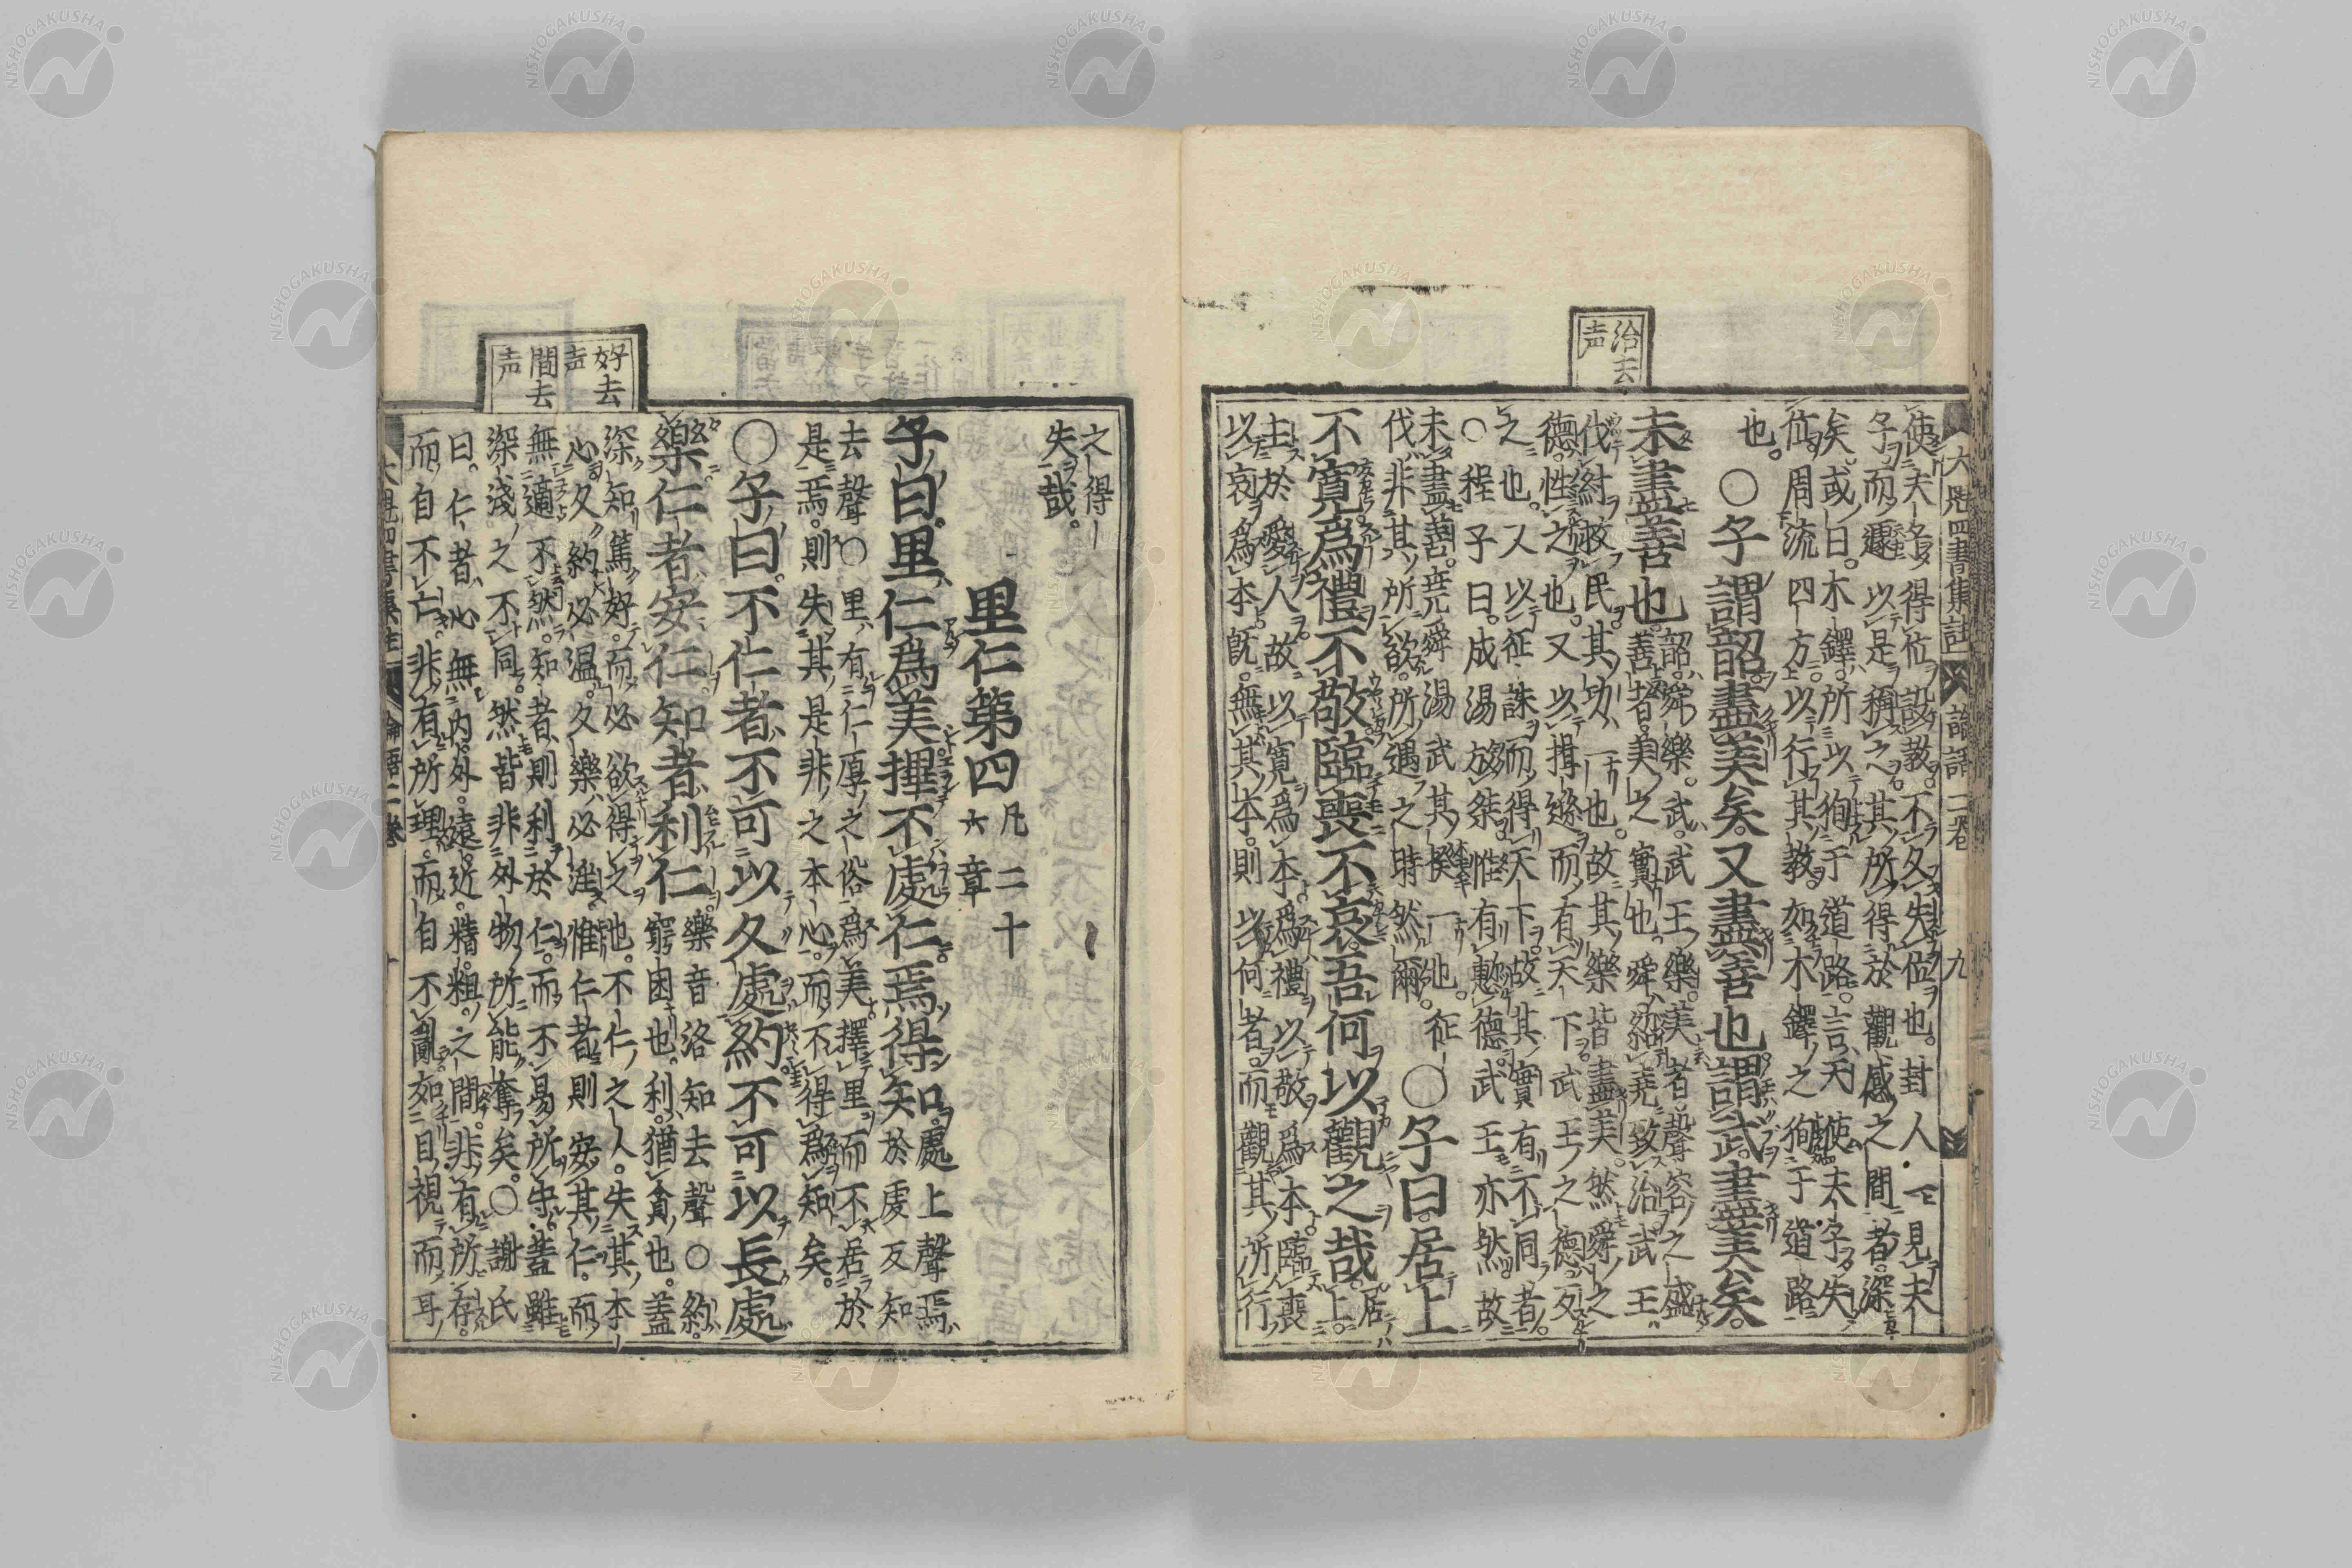 治去
声
大魁四書集註 論語二卷 九
使夫子得位設教不久失位也封人一見夫
子而遽以是稱之其所得於觀感之間者深
矣或曰木鐸所以徇于道路言天使夫子失
位周流四方以行其教如木鐸之徇于道路
也○子謂韶盡美矣又盡善也謂武盡美矣
未盡善也
韶舜樂武武王樂美者聲容之盛
善者美之實也舜紹堯致治武王
伐紂救民其功一也故其樂皆盡美然舜之
德性之也又以揖遜而有天下武王之德反
之也又以征誅而得天下故其實有不同者
○程子曰成湯放桀惟有慙德武王亦然故
未盡善堯舜湯武其揆一也征
伐非其所欲所遇之時然爾
○子曰居上
不寬爲禮不敬臨喪不哀吾何以觀之哉
居
上
主於愛人故以寬爲本爲禮以敬爲本臨喪
以哀爲本旣無其本則以何者而觀其所行
好去
声
間去
声
之得
失哉
里仁第四
凡二十
六章
子曰里仁爲美擇不處仁焉得知
處上聲焉
於虔反知
去聲○里有仁厚之俗爲美擇里而不居於
是焉則失其是非之本心而不得爲知矣
○子曰不仁者不可以久處約不可以長處
樂仁者安仁知者利仁
樂音洛知去聲○約
窮困也利猶貪也蓋
深知篤好而必欲得之也不仁之人失其本
心久約必濫久樂必淫惟仁者則安其仁而
無適不然知者則利於仁而不易所守蓋雖
深淺之不同然皆非外物所能奪矣○謝氏
曰仁者心無內外遠近精粗之間非有所存
而自不亡非有所理而自不亂如目視而耳
論語二卷
NISHOGAKUSHA